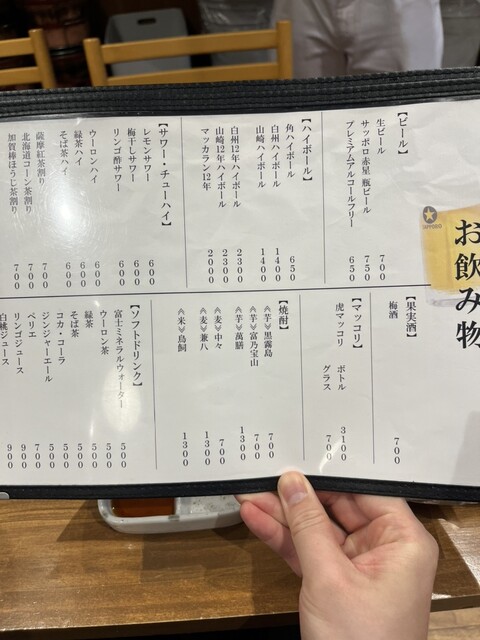 お飲み物
SAPPORO
【ビール】
生ビール 700
サッポロ赤星 瓶ビール 750
プレミアムアルコールフリー 650
【ハイボール】
角ハイボール 650
白州ハイボール 1400
山崎ハイボール 1400
白州12年ハイボール 2300
山崎12年ハイボール 2300
マッカラン12年 2000
【サワー・チューハイ】
レモンサワー 600
梅干しサワー 600
リンゴ酢サワー 600
ウーロンハイ 600
緑茶ハイ 600
そば茶ハイ 600
薩摩紅茶割り 700
北海道コーン茶割り 700
加賀棒ほうじ茶割り 700
【果実酒】
梅酒 700
【マッコリ】
虎マッコリ ボトル 3100
グラス 700
【焼酎】
≪芋≫黒霧島 700
≪芋≫富乃宝山 700
≪芋≫萬膳 1300
≪麦≫中々 700
≪麦≫兼八 1300
≪米≫鳥飼 1300
【ソフトドリンク】
富士ミネラルウォーター 500
ウーロン茶 500
緑茶 500
そば茶 500
コカ・コーラ 500
ジンジャーエール 500
ペリエ 700
リンゴジュース 900
白桃ジュース 900